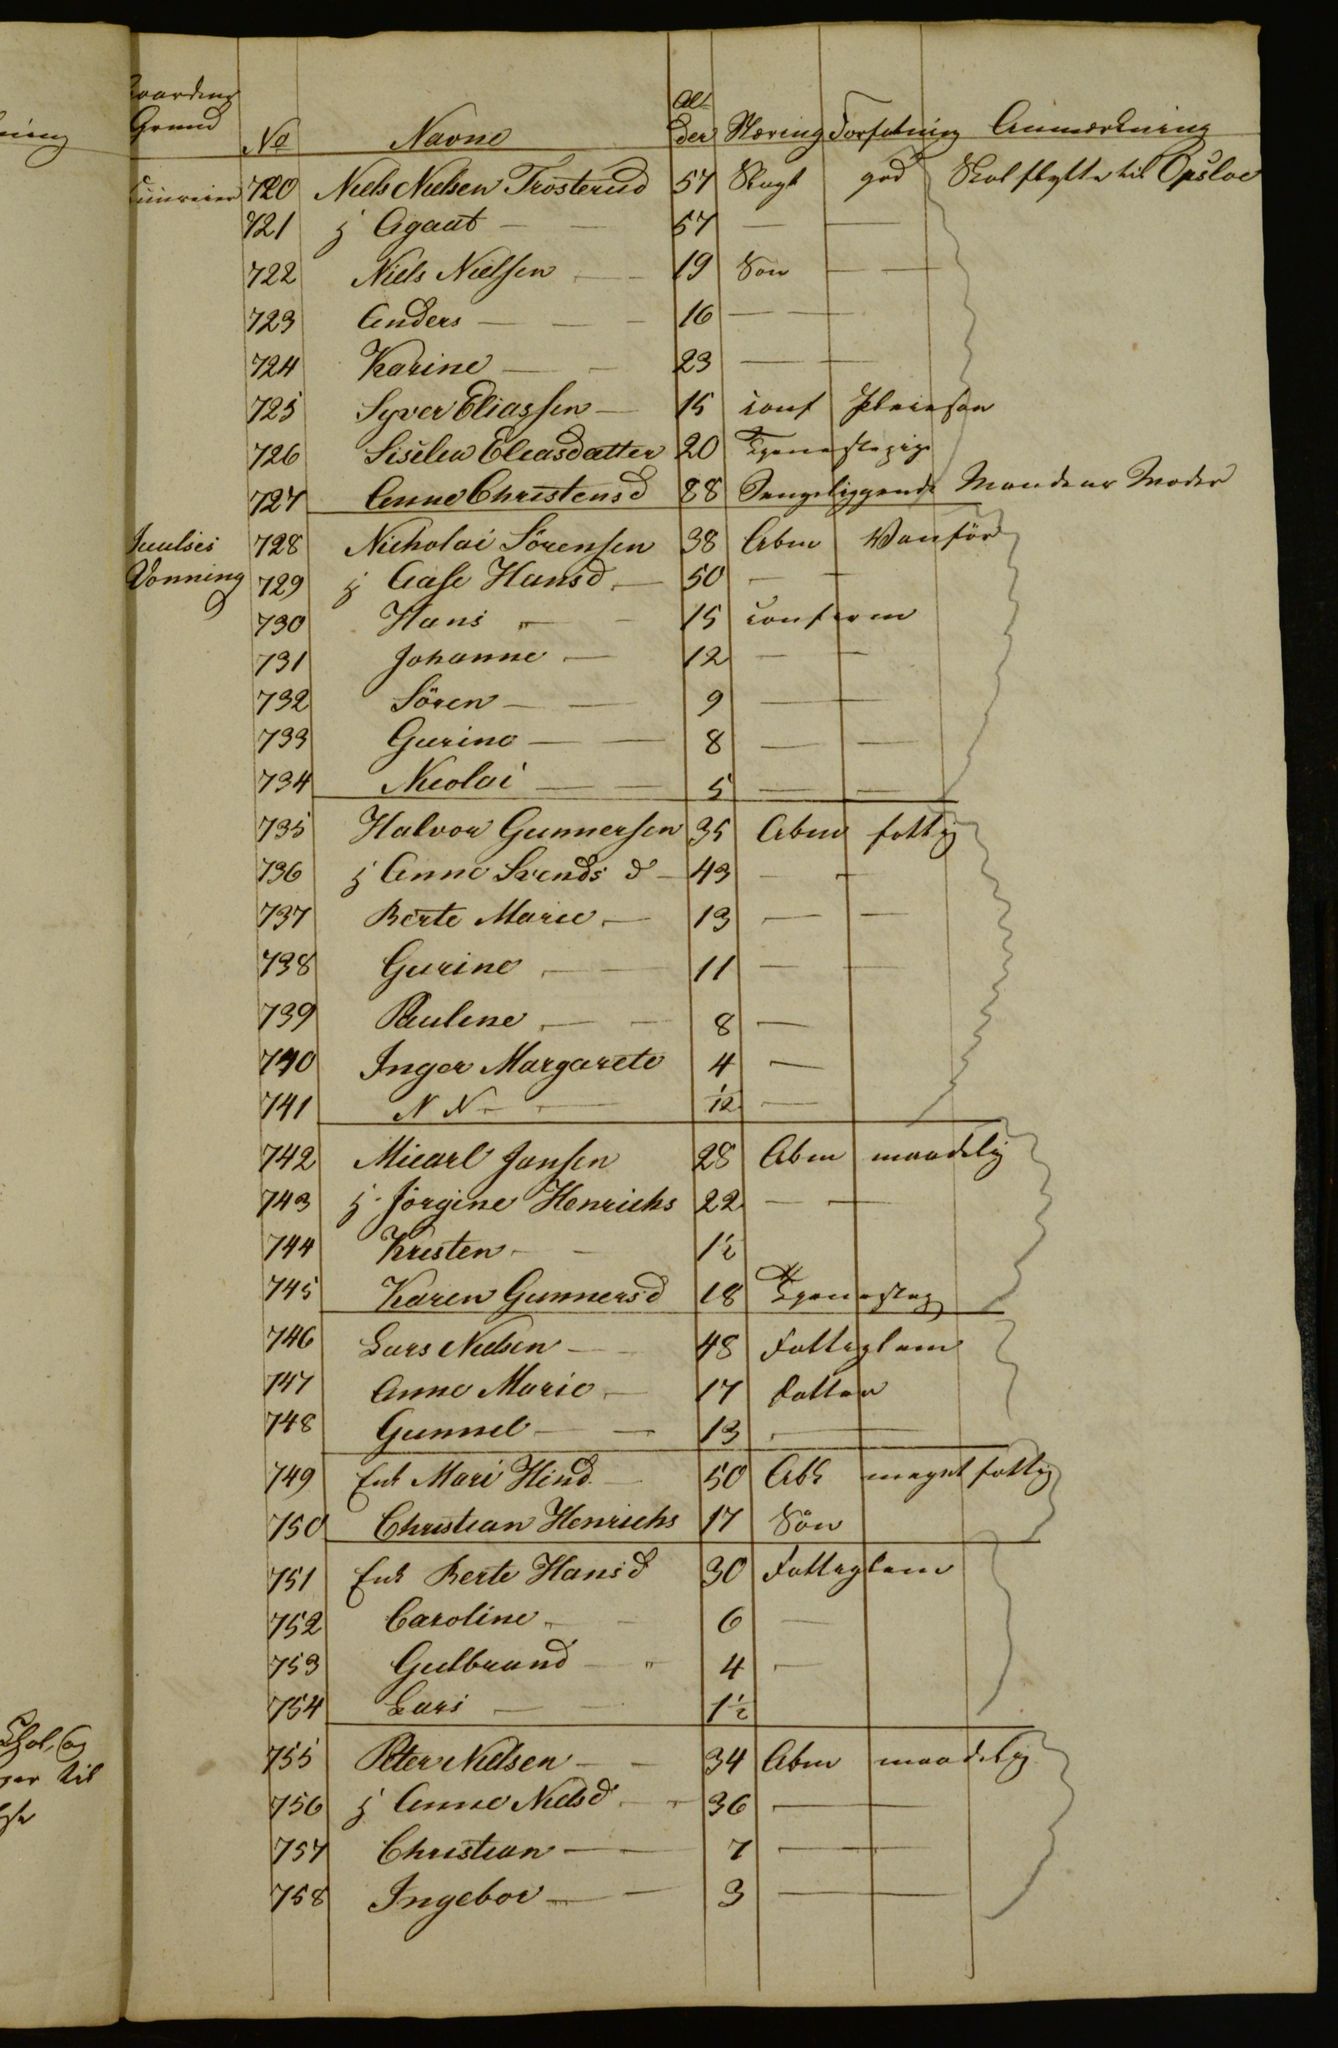 Grund No Navne Alder Næring Forfatning Anmærkning
720 Niels Nielsen Trosterud 57 god Skal flytte til Opsloe
721 Agaat — — 57 — —
722 Niels Nielsen — 19 Søn — —
723 Anders — — — 16 — —
724 Karine — — 23 — —
725 Syver Eliassen — 15 conf Pleiesøn
726 Siselia Eleasdatter 20 Tjenestepige
727 Anne Christensd 88 Sengeliggende Mandens Moder
728 Nicholai Sörensen 38 Abm Vanför
Vonning 729 Aase Hansd — 50 — —
730 Hans — — 15 confirm
731 Johanne — 12 — —
732 Sören — — 9 — —
733 Gurine — — 8 — —
734 Nicolai — — 5 — —
735 Halvor Gunnersen 35 Abm fattig
736 Anne Svends d — 43 — —
737 Berte Marie — 13 — —
738 Gurine — — 11 — —
739 Pauline — — 8 —
740 Inger Margarete 4 —
741 N N — — 1/12 —
742 Micael Jansen 28 Abm maadelig
743 Jörgine Henrichs 22 — —
744 Kristen — — 1½
745 Karen Gunnersd 18 Tjenestep
746 Lars Nielsen — — 48 Fattiglem
747 Anne Marie — 17 Datter
748 Gunnel — — 13 —
749 Enk Mari Hind — 50 meget fattig
750 Christian Henrichs 17 Sön
751 Enk Berte Hansd 30 Fattiglem
752 Caroline — — 6 —
753 Gulbrand — „ 4 —
754 Lars — — 1½
755 Peter Nielsen — — 34 Abm maadelig
756 Anne Nielsd — — 36 — —
757 Christian — — 7 — —
758 Ingebor — — 3 — —